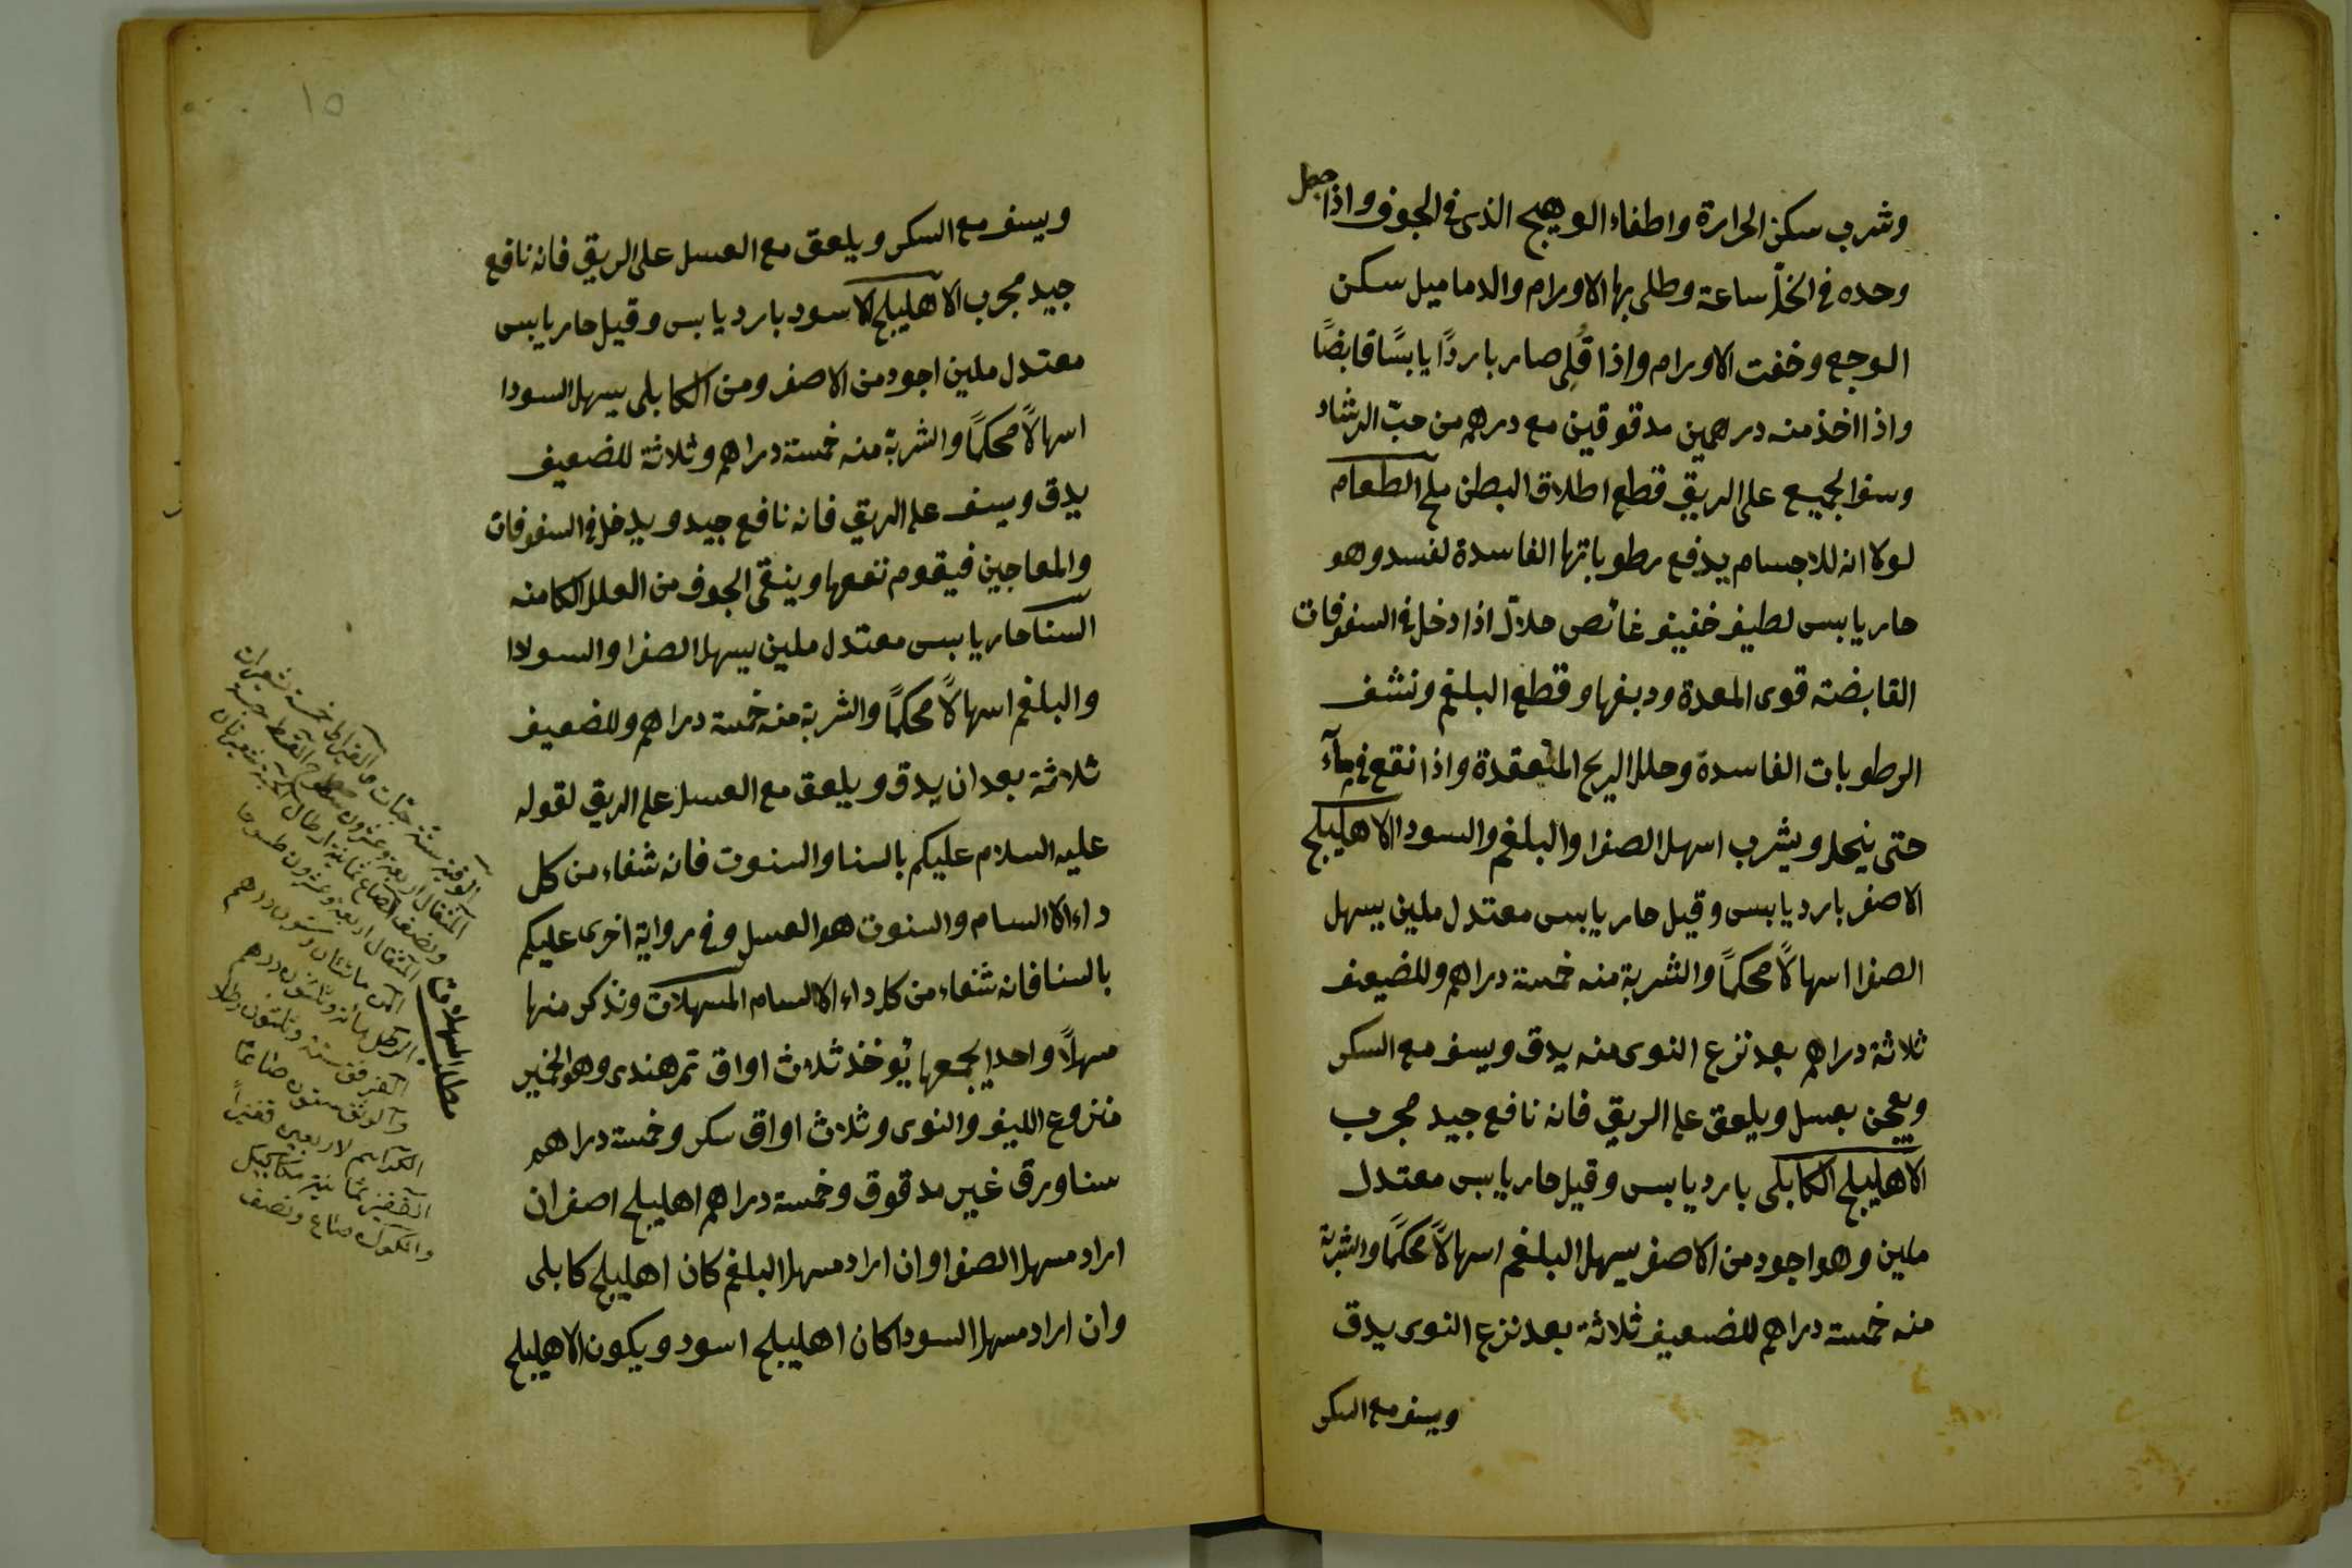 وشرب سكن الحرارة واطفاء الوهيج الذى فى الجوف واذا جعل
وحده فى الخلّ ساعة وطلى بها الاورام والدماميل سكن
الوجع وخفت الاورام واذا قُلِى صار باردًا يابسًا قابضًا
واذا اخذ منه درهمين مدقوقين مع درهم من حبّ الرشاد
وسف الجميع على الريق قطع اطلاق البطن ملح الطعام
لولا انه للاجسام يدفع رطوباتها الفاسدة لفسد وهو
حار يابس لطيف خفيف غائص حلاّل اذا دخل فى السفوفات
القابضة قوى المعدة ودبغها وقطع البلغم ونشف
الرطوبات الفاسدة وحلل الريح المنعقدة واذا نقع فى مآء
حتى ينحل ويشرب اسهل الصفرا والبلغم والسودا الاهليلج
الاصفر بارد يابس وقيل حار يابس معتدل ملين يسهل
الصفرا اسهالاً محكمًا والشربة منه خمسة دراهم وللضعيف
ثلاثة دراهم بعد نزع النوى منه يدق ويسف مع السكر
ويعجن بعسل ويلعق على الريق فانه نافع جيد مجرب
الاهليلج الكابلى بارد يابس وقيل حار يابس معتدل
ملين وهو اجود من الاصفر يسهل البلغم اسهالاً محكمًا والشربة
منه خمسة دراهم للضعيف ثلاثة بعد نزع النوى يدق
ويسف مع السكر
١٥
ويسف مع السكر ويلعق مع العسل على الريق فانه نافع
جيد مجرب الاهليلج الاسود بارد يابس وقيل حار يابس
معتدل ملين اجود من الاصفر ومن الكابلى يسهل السودا
اسهالاً محكمًا والشربة منه خمسة دراهم وثلاثة للضعيف
يدق ويسف على الريق فانه نافع جيد ويدخل فى السفوفات
والمعاجين فيقوم نفعها وينقى الجوف من العلل الكامنه
السنا حار يابس معتدل ملين يسهل الصفرا والسودا
والبلغم اسهالاً محكمًا والشربة منه خمسة دراهم وللضعيف
ثلاثة بعد ان يدق ويلعق مع العسل على الريق لقوله
عليه السلام عليكم بالسنا والسنوت فانه شفاء من كل
داء الا السام والسنوت هو العسل وفى رواية اخرى عليكم
بالسنا فانه شفاء من كل داء الا السام المسهلات ونذكر منها
مسهلاً واحدا يجمعها يُوخذ ثلاث اواق تمر هندى وهو الحمر
منزوع الليف والنوى وثلاث اواق سكر وخمسة دراهم
سنا ورق غير مدقوق وخمسة دراهم اهليلج اصفر ان
اراد مسهل الصفرا وان اراد مسهل البلغم كان اهليلج كابلى
وان اراد مسهل السودا كان اهليلج اسود ويكون الاهليلج
مطلب المسهلات
المثقال اربعة وعشرون طسوجا
المن مائتان وستون درهم
الرطل مائة وثلثون درهم
الفرق ستة وثلثون رطلا
والوسق ستون صاعًا
لاربعين قفيزاً
القفيز ثمانية مكاكيك
والمكوك صاع ونصف